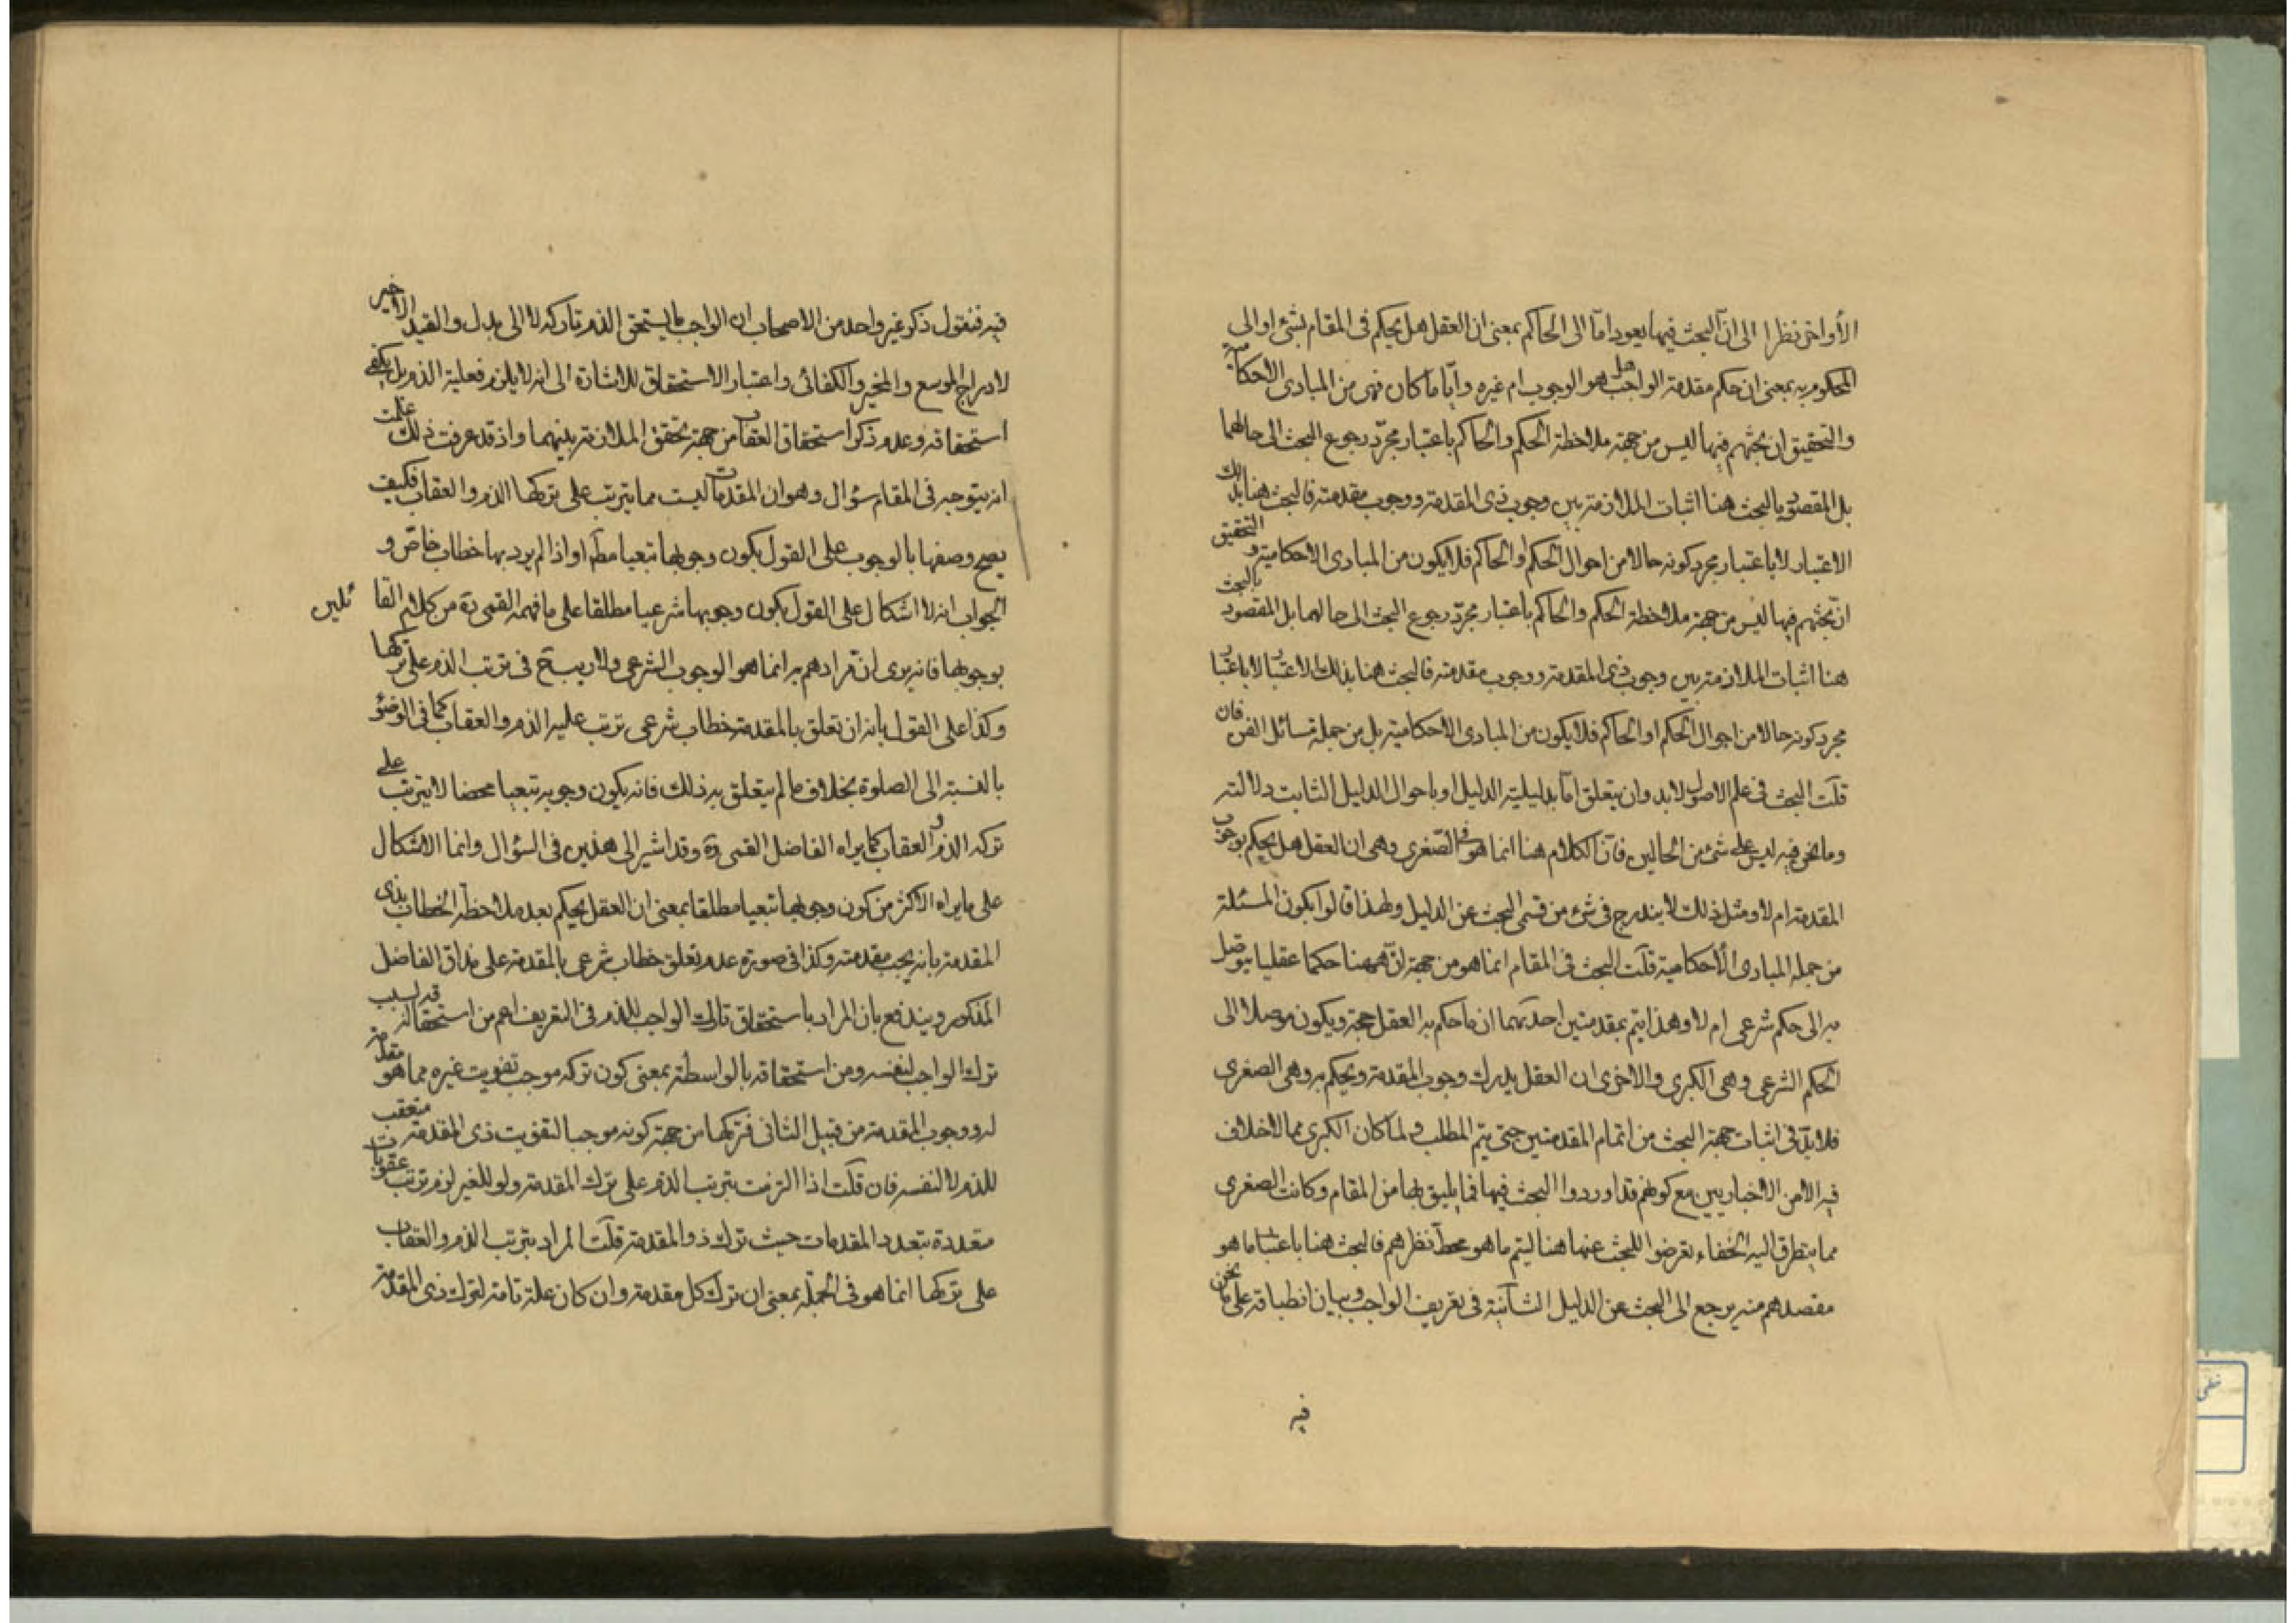 الأواخر نظرا الى ان البحث فيها يعود اما الى الحاكم بمعنى ان العقل هل يحكم فى المقام بشئ او الى
المحكوم به بمعنى ان حكم مقدمة الواجب هل هو الوجوب ام غيره وأيا ما كان فهى من المبادى الاحكامية
والتحقيق ان بحثهم فيها ليس من جهة ملاحظة الحكم والحاكم باعتبار مجرد رجوع البحث الى حالهما
بل المقصود بالبحث هنا اثبات الملازمة بين وجوب ذى المقدمة ووجوب مقدمته فالبحث هنا بذلك
الاعتبار لا باعتبار مجرد كونه حالا من احوال الحكم او الحاكم فلا يكون من المبادى الاحكامية والتحقيق
ان بحثهم فيها ليس من جهة ملاحظة الحكم والحاكم باعتبار مجرد رجوع البحث الى حالهما بل المقصود بالبحث
هنا اثبات الملازمة بين وجوب ذى المقدمة ووجوب مقدمته فالبحث هنا بذلك الاعتبار لا باعتبار
مجرد كونه حالا من احوال الحكم او الحاكم فلا يكون من المبادى الاحكامية بل من جملة مسائل الفن فان
قلت البحث فى علم الاصول لابد وان يتعلق اما بدليلية الدليل او باحوال الدليل الثابت دلالته
وما نحن فيه ليس على شئ من الحالين فان الكلام هنا انما هو فى الصغرى وهى ان العقل هل يحكم بوجوب
المقدمة ام لا ومثل ذلك لا يندرج فى شئ من قسمى البحث عن الدليل ولهذا قالوا بكون المسئلة
من جملة المبادى الأحكامية قلت البحث فى المقام انما هو من جهة ان ههنا حكما عقليا يتوصل
به الى حكم شرعى ام لا وهذا يتم بمقدمتين احديهما ان ما حكم به العقل حجة ويكون موصلا الى
الحكم الشرعى وهى الكبرى والاخرى ان العقل يدرك وجوب المقدمة ويحكم به وهى الصغرى
فلابد فى اثبات جهة البحث من اتمام المقدمتين حتى يتم المطلب ولما كان الكبرى مما لا خلاف
فيه الا من الاخباريين مع كونهم قد اوردوا البحث فيها فيما يليق بها من المقام وكانت الصغرى
مما يتطرق اليه الخفاء تعرضوا للبحث عنها هنا ليتم ما هو محط نظرهم فالبحث هنا باعتبار ما هو
مقصدهم منه يرجع الى البحث عن الدليل الثانية فى تعريف الواجب وبيان انطباقه على ما نحن
فيه
فيه فنقول ذكر غير واحد من الاصحاب ان الواجب ما يستحق الذم تاركه لا الى بدل والقيد الاخير
لادراج الموسع والمخير والكفائى واعتبار الاستحقاق للاشارة الى انه لا يلزم فعلية الذم بل يكفى
استحقاقه وعدم ذكر استحقاق العقاب من جهة تحقق الملازمة بينهما واذ قد عرفت ذلك علمت
انه يتوجه فى المقام سؤال وهو ان المقدمات ليست مما يترتب على تركها الذم والعقاب فكيف
يصح وصفها بالوجوب على القول بكون وجوبها تبعيا مطلقا او اذا لم يرد بها خطاب خاص و
الجواب انه لا اشكال على القول بكون وجوبها شرعيا مطلقا على ما فهمه القمى ره من كلام القائلين
بوجوبها فانه يرى ان مرادهم به انما هو الوجوب الشرعى ولا ريب ح فى ترتب الذم على تركها
وكذا على القول بانه ان تعلق بالمقدمة خطاب شرعى ترتب عليه الذم والعقاب كما فى الوضوء
بالنسبة الى الصلوة بخلاف ما لم يتعلق به ذلك فانه يكون وجوبه تبعيا محضا لا يترتب على
تركه الذم والعقاب كما يراه الفاضل القمى ره وقد اشير الى هذين فى السؤال وانما الاشكال
على ما يراه الاكثر من كون وجوبها تبعيا مطلقا بمعنى ان العقل يحكم بعد ملاحظة الخطاب بذى
المقدمة بانه يجب مقدمته وكذا فى صورة عدم تعلق خطاب شرعى بالمقدمة على مذاق الفاضل
المذكور ويندفع بان المراد باستحقاق تارك الواجب للذم فى التعريف اعم من استحقاقه لسبب
ترك الواجب لنفسه ومن استحقاقه بالواسطة بمعنى كون تركه موجب تفويت غيره مما هو مقدمة
له ووجوب المقدمة من قبيل الثانى فتركها من جهة كونه موجبا لتفويت ذى المقدمة متعقب
للذم لا لنفسه فان قلت اذا التزمت بترتب الذم على ترك المقدمة ولو للغير لزم ترتب عقوبات
متعددة بتعدد المقدمات حيث ترك ذو المقدمة قلت المراد بترتب الذم والعقاب
على تركها انما هو فى الجملة بمعنى ان ترك كل مقدمة وان كان علة تامة لترك ذى المقدمة